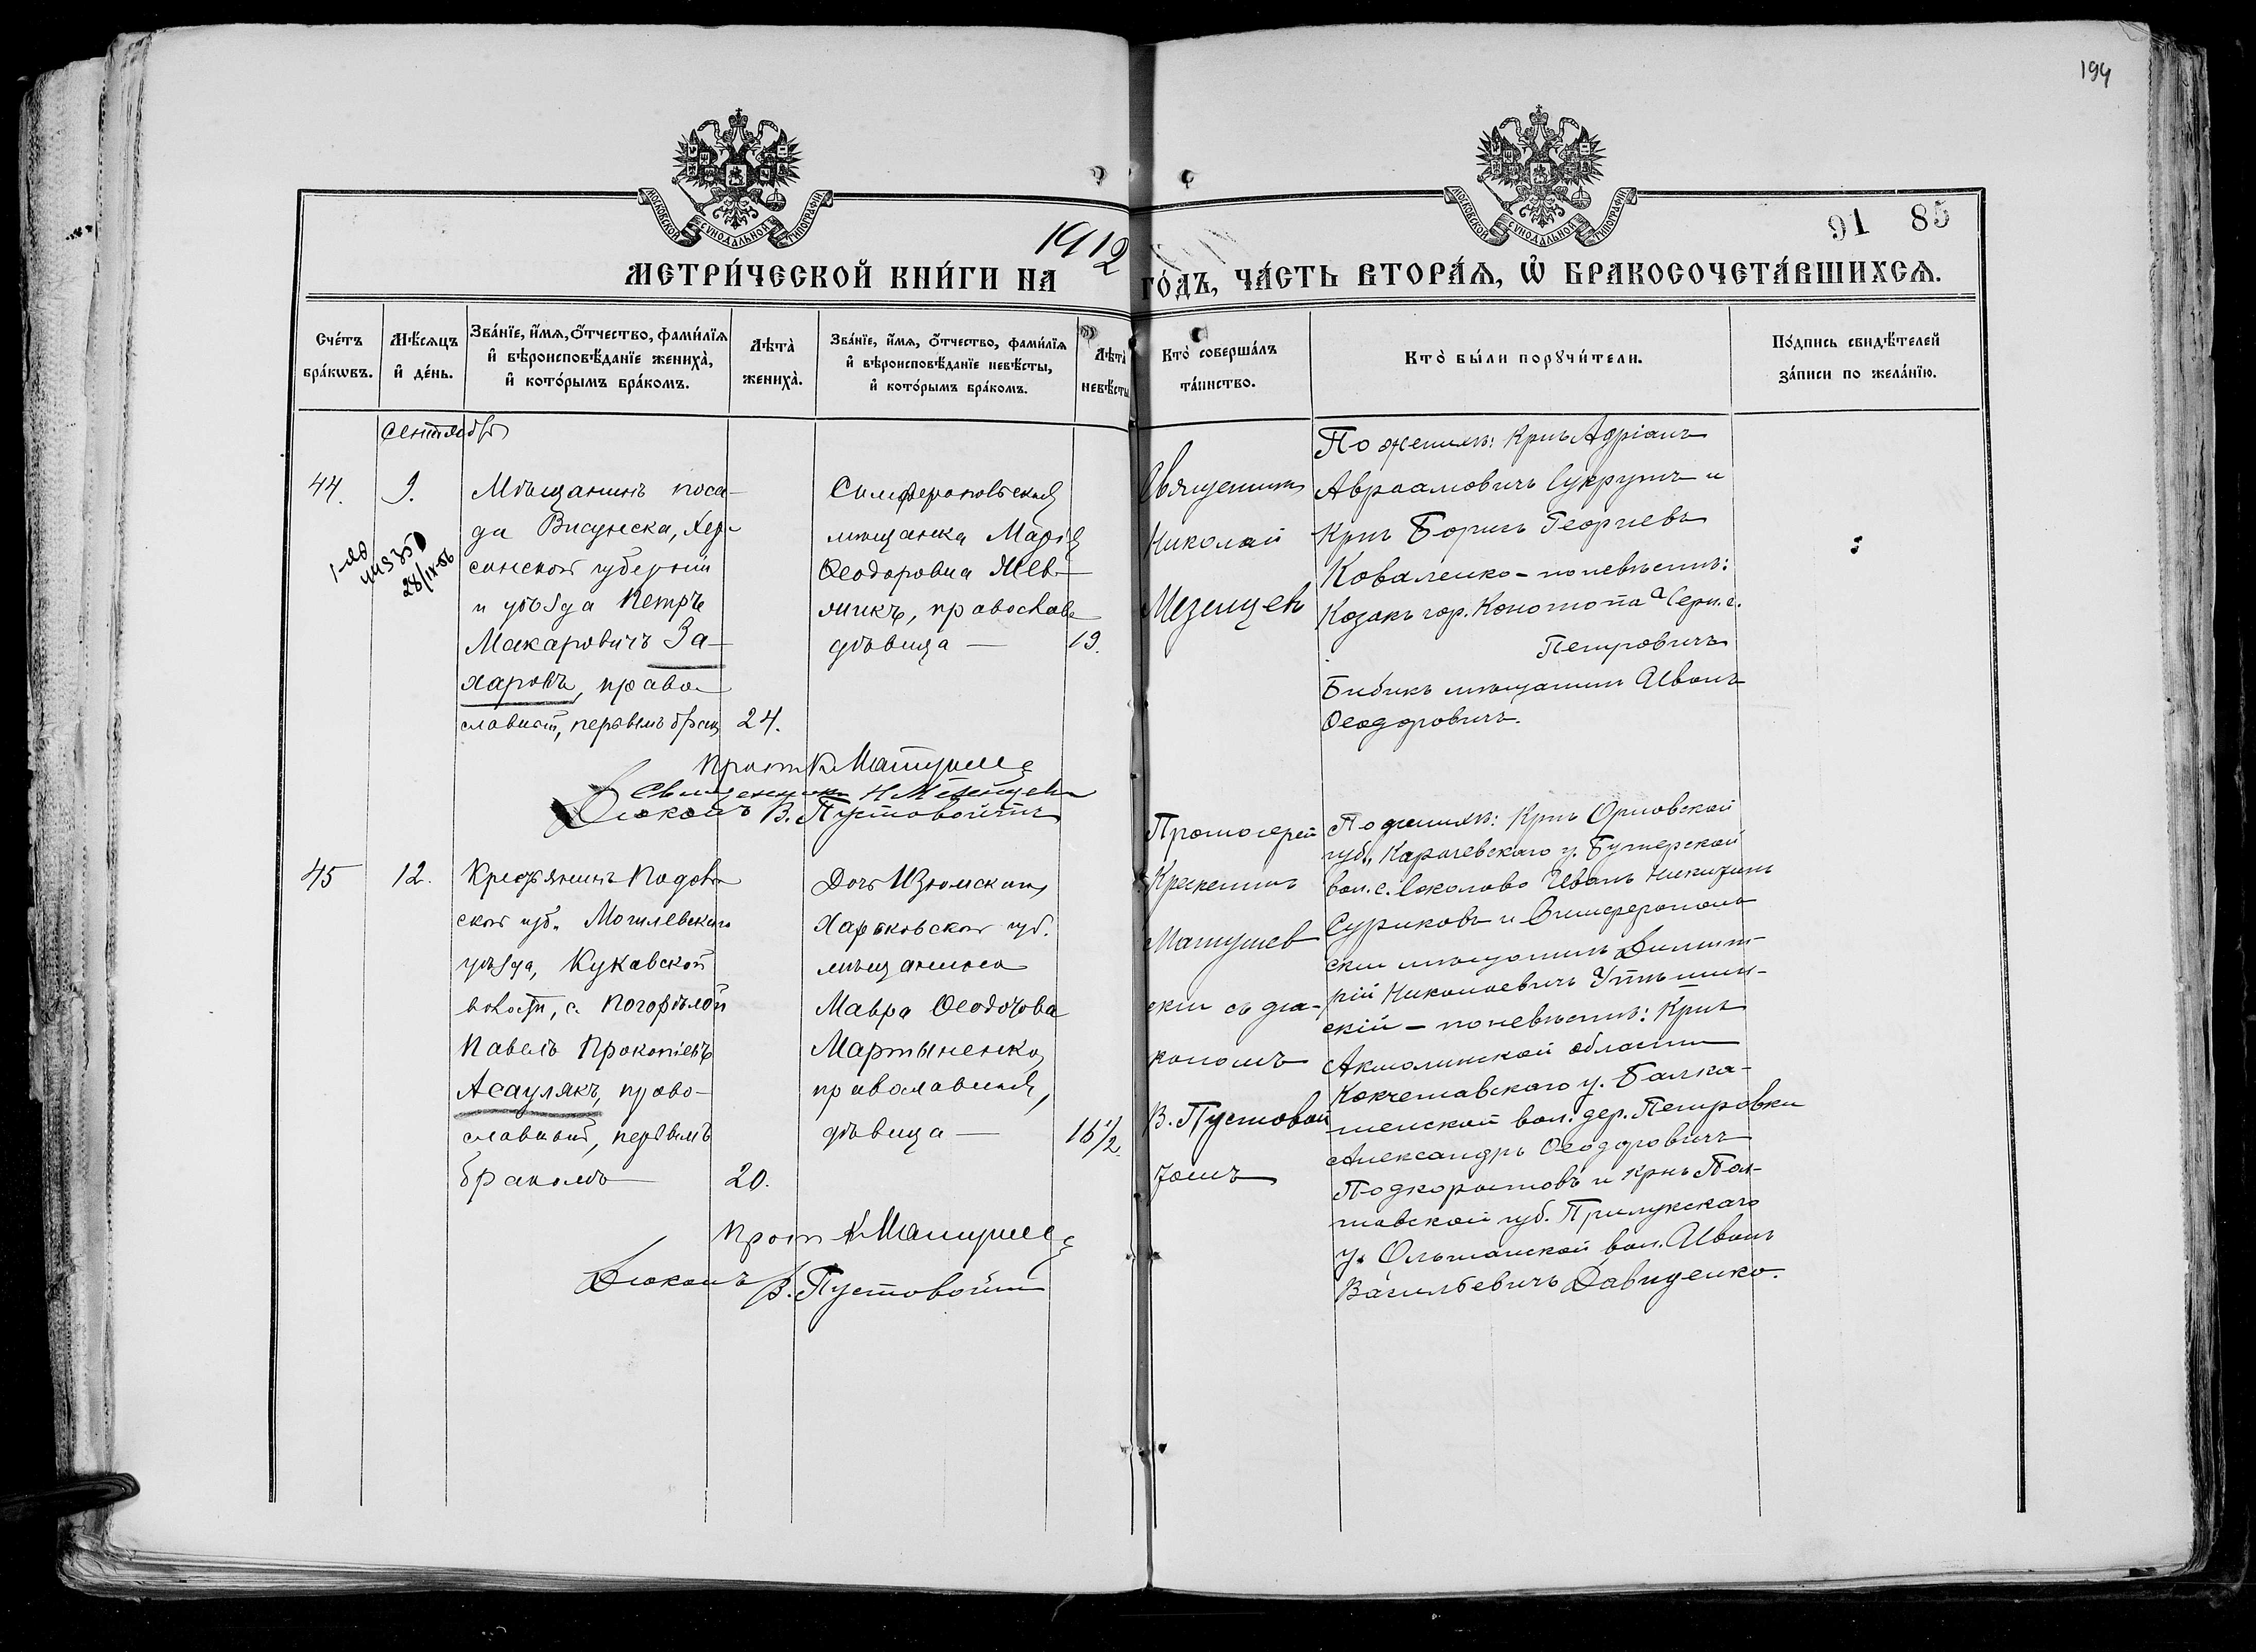 194
МОСКОВСКОЙ СѴНОДАЛЬНОЙ ТИПОГРАФІИ
МОСКОВСКОЙ СѴНОДАЛЬНОЙ ТИПОГРАФІИ
91 85
МЕТРИ́ЧЕСКОЙ КНИ́ГИ НА 1912 ГО́ДЪ, ЧА́СТЬ ВТОРА́Ѧ, Ѽ БРАКОСОЧЕТА́ВШИХСѦ.
Сче́тъ бра́кѡвъ.
Мѣ́сяцъ и҆ де́нь.
Зва́нїе, и҆́мѧ, ѻ҆́тчество, фами́лїѧ и҆ вѣроисповѣ́данїе жениха̀, и҆ кото́рымъ бра́комъ.
Лѣта̀ жениха̀.
Зва́нїе, и҆́мѧ, ѻ҆́тчество, фами́лїѧ и҆ вѣроисповѣ́данїе невѣ́сты, и҆ кото́рымъ бра́комъ.
Лѣта̀ невѣ́сты
Кто̀ соверша́лъ та́инство.
Кто̀ бы́ли порꙋчи́тели.
По́дпись свидѣ́телей за́писи по жела́нїю.
Сентябрь
44.
9.
28/IX-56
Мѣщанинъ поса-
да Висунска, Хер-
сонской губерніи
и уѣзда Петръ
Макаровичъ За-
харовъ, право-
славный, первымъ брак.
24.
Симферопольская
мѣщанка Марія
Ѳеодоровна
православн.
дѣвица —
19.
Священникъ
Николай
Мезенцев
По женихѣ: Крнъ Адріанъ
Авраамовичъ Сукрутъ и
Крнъ Борисъ Георгіевъ
Коваленко – по невѣстѣ:
Козакъ гор. Конотопа
Петровичъ
Бибикъ мѣщанин Иванъ
Ѳеодоровичъ.
Прот. К. Матушевс
Священникъ Н Мезенцевъ
Діаконъ В. Пустовойтъ
45
12.
Крестьянинъ Подоль
ской губ. Могилевскаго
уѣзда, Кукавской
волости, с. Погорѣлой
Павелъ Прокопіевъ
Асаулякъ, право-
славный, первымъ
бракомъ
20.
Дочь Изюмскаго
Харьковской губ.
мѣщанина
Мавра Ѳеодотова
Мартыненко,
православная,
дѣвица —
15 1/2.
Протоіерей
Крискентъ
Матушев
скій съ діа-
кономъ
В. Пустовой
томъ
По женихѣ: Крнъ Орловской
губ., Карачевскаго у. Бутерской
вол. с. Соколово Иванъ Никитинъ
Суриковъ и Симферополь
скій мѣщанинъ Димит-
рій Николаевичъ Утѣшин-
скій – по невѣстѣ: Крнъ
Акмолинской области
Кокчетавскаго у. Балка-
шенской вол. дер. Петровки
Александръ Ѳеодоровичъ
Подкорытовъ и Крнъ Пол-
тавской губ. Прилукскаго
у. Ольшанской вол. Иванъ
Васильевичъ Давиденко.
Прот К Матушевс
Діаконъ В. Пустовойтъ